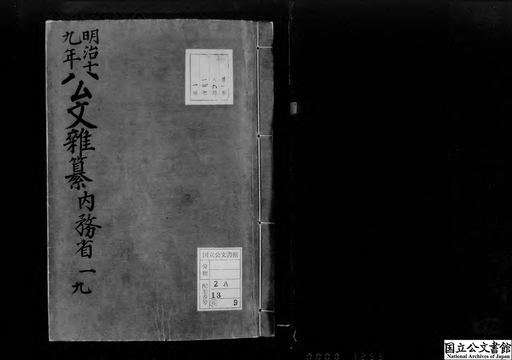 明治十
九年
公文雑纂内務省一九
国立公文書館
分類
配架番号
2 A
13
9
0000 1255
国立公文書館
National Archives of Japan